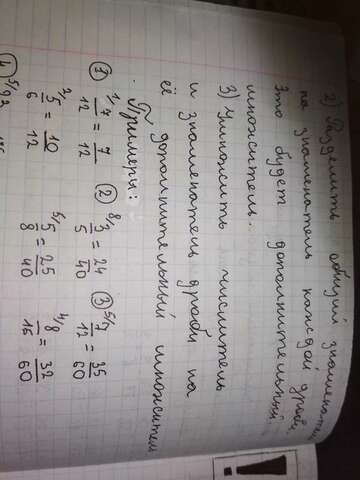 2) Разделить общий знаменатель
на знаменатель каждой дроби.
Это будет дополнительный
множитель.
3) Умножить числитель
и знаменатель дроби на
её дополнительный множитель
Примеры:
① 1/ 7/12 = 7/12 ② 8/ 3/5 = 24/40 ③ 5/ 7/12 = 35/60
2/ 5/6 = 10/12 5/ 5/8 = 25/40 4/ 8/15 = 32/60
④
!